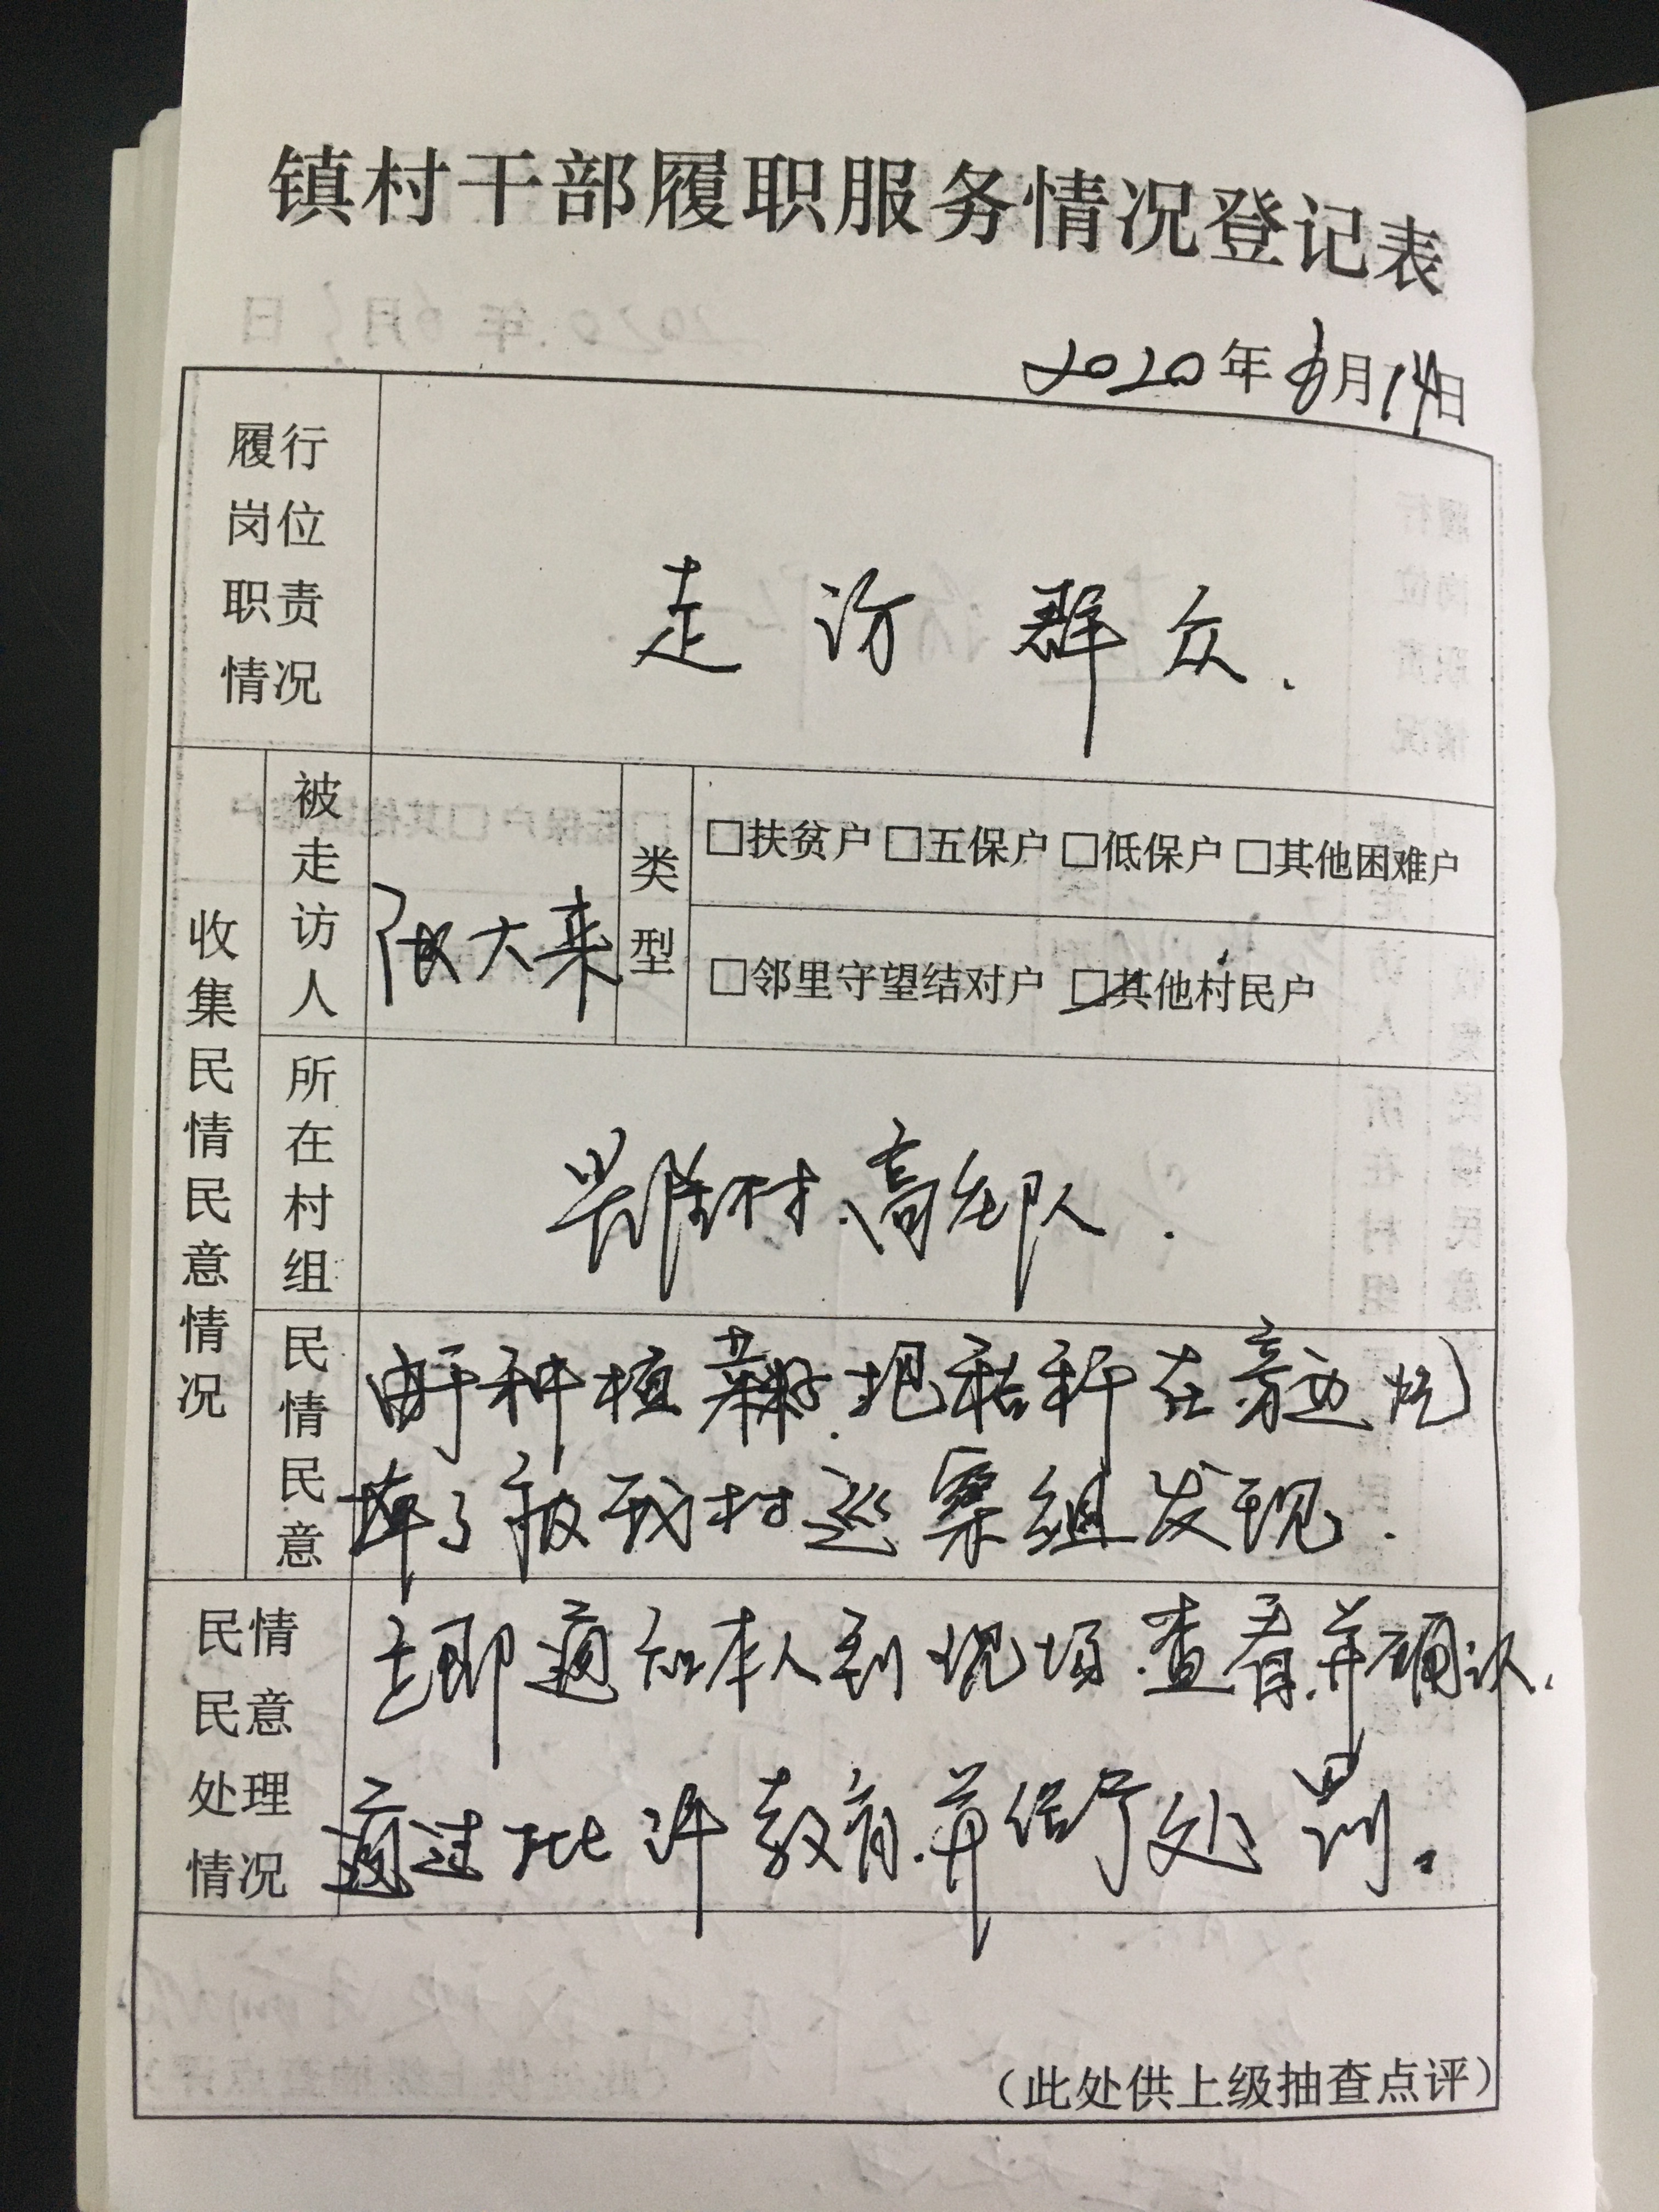 镇村干部履职服务情况登记表
2020年6月14日
履行
岗位
职责
情况
走访群众.
收集民情民意情况
被走访人
大来
类型
□扶贫户 □五保户 □低保户 □其他困难户
□邻里守望结对户 ☑其他村民户
所在村组
兴隆村、高庄队.
民情民意
由于种植 把秸秆在旁边烧
掉了被我村巡察组发现.
民情
民意
处理
情况
立即通知本人到现场.查看.并确认.
通过批评教育.并给予处罚。
（此处供上级抽查点评）